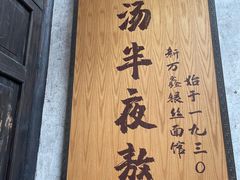 汤半夜熬
新万鑫银丝面馆
始于一九三〇